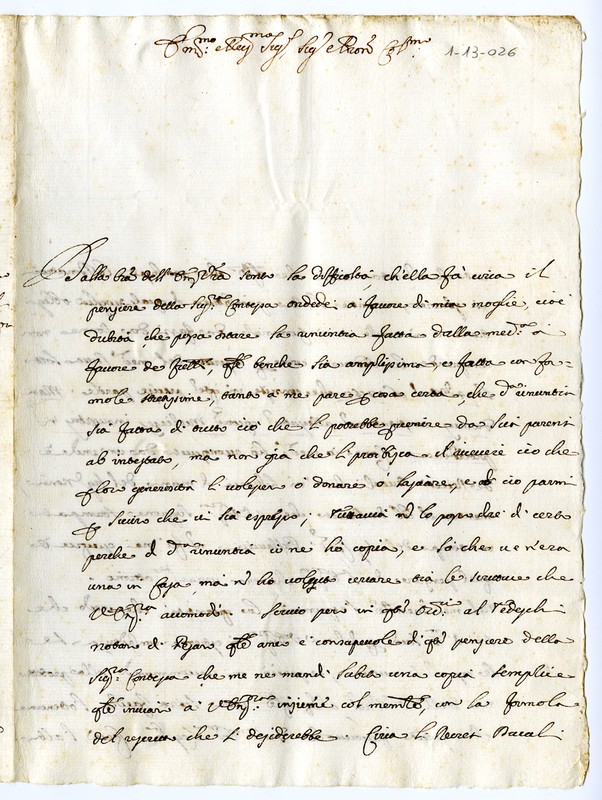 1-13-026
Dalla l'ra dell' Em: V'ra sento la difficoltà, ch'ella fà circa il
pensiere della Sig.ra Contessa Ondedei a favore di mia moglie, cioè
dubita che possa ostare la renuntia fatta dalla med.ma à
favore de fratti, q'le benche sia amplissima, e fatta con for=
mole strettissime, tanto a me pare cosa certa, che d.a rinuntia
sia fatta di tutto ciò che li potrebbe pervenire da suoi parenti
ab intestato, ma non già che li proibisca il ricevere ciò che
p lor generosità li volessero ò donare o lasciare, e ciò parmi
p sicuro che vi sia espresso, tuttavia nõ lo posso dire di certo
perche di d.a rinuntia io ne hò copia, e sò che ve n'era
una in Casa, ma nõ ho cercare trà le scritture che
accomodi. Scrivo però in q'sto Ord.rio al Tedeschi
notaro di Pesaro q'le anco è consapevole di q'sto pensiere della
Sig.ra Contessa che me ne mandi subito una copia semplice
q'le inviarò a insieme col mem'le, con la formola
del rescritto che si desiderebbe. Circa li Decreti